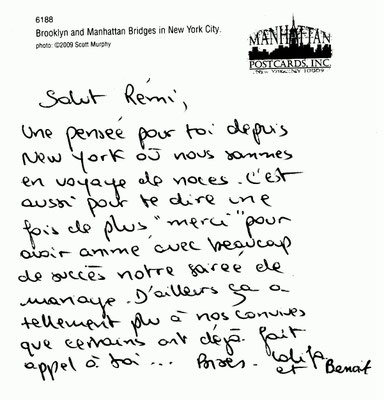 6188
Brooklyn and Manhattan Bridges in New York City.
photo: ©2009 Scott Murphy
MANHATTAN
POSTCARDS, INC.
Salut Rémi,
Une pensée pour toi depuis
New York où nous sommes
en voyage de noces. C'est
aussi pour te dire une
fois de plus "merci" pour
avoir animé avec beaucoup
de succès notre soirée de
mariage. D'ailleurs ça a
tellement plu à nos convives
que certains ont déjà fait
appel à toi... Bises.
et Benoit